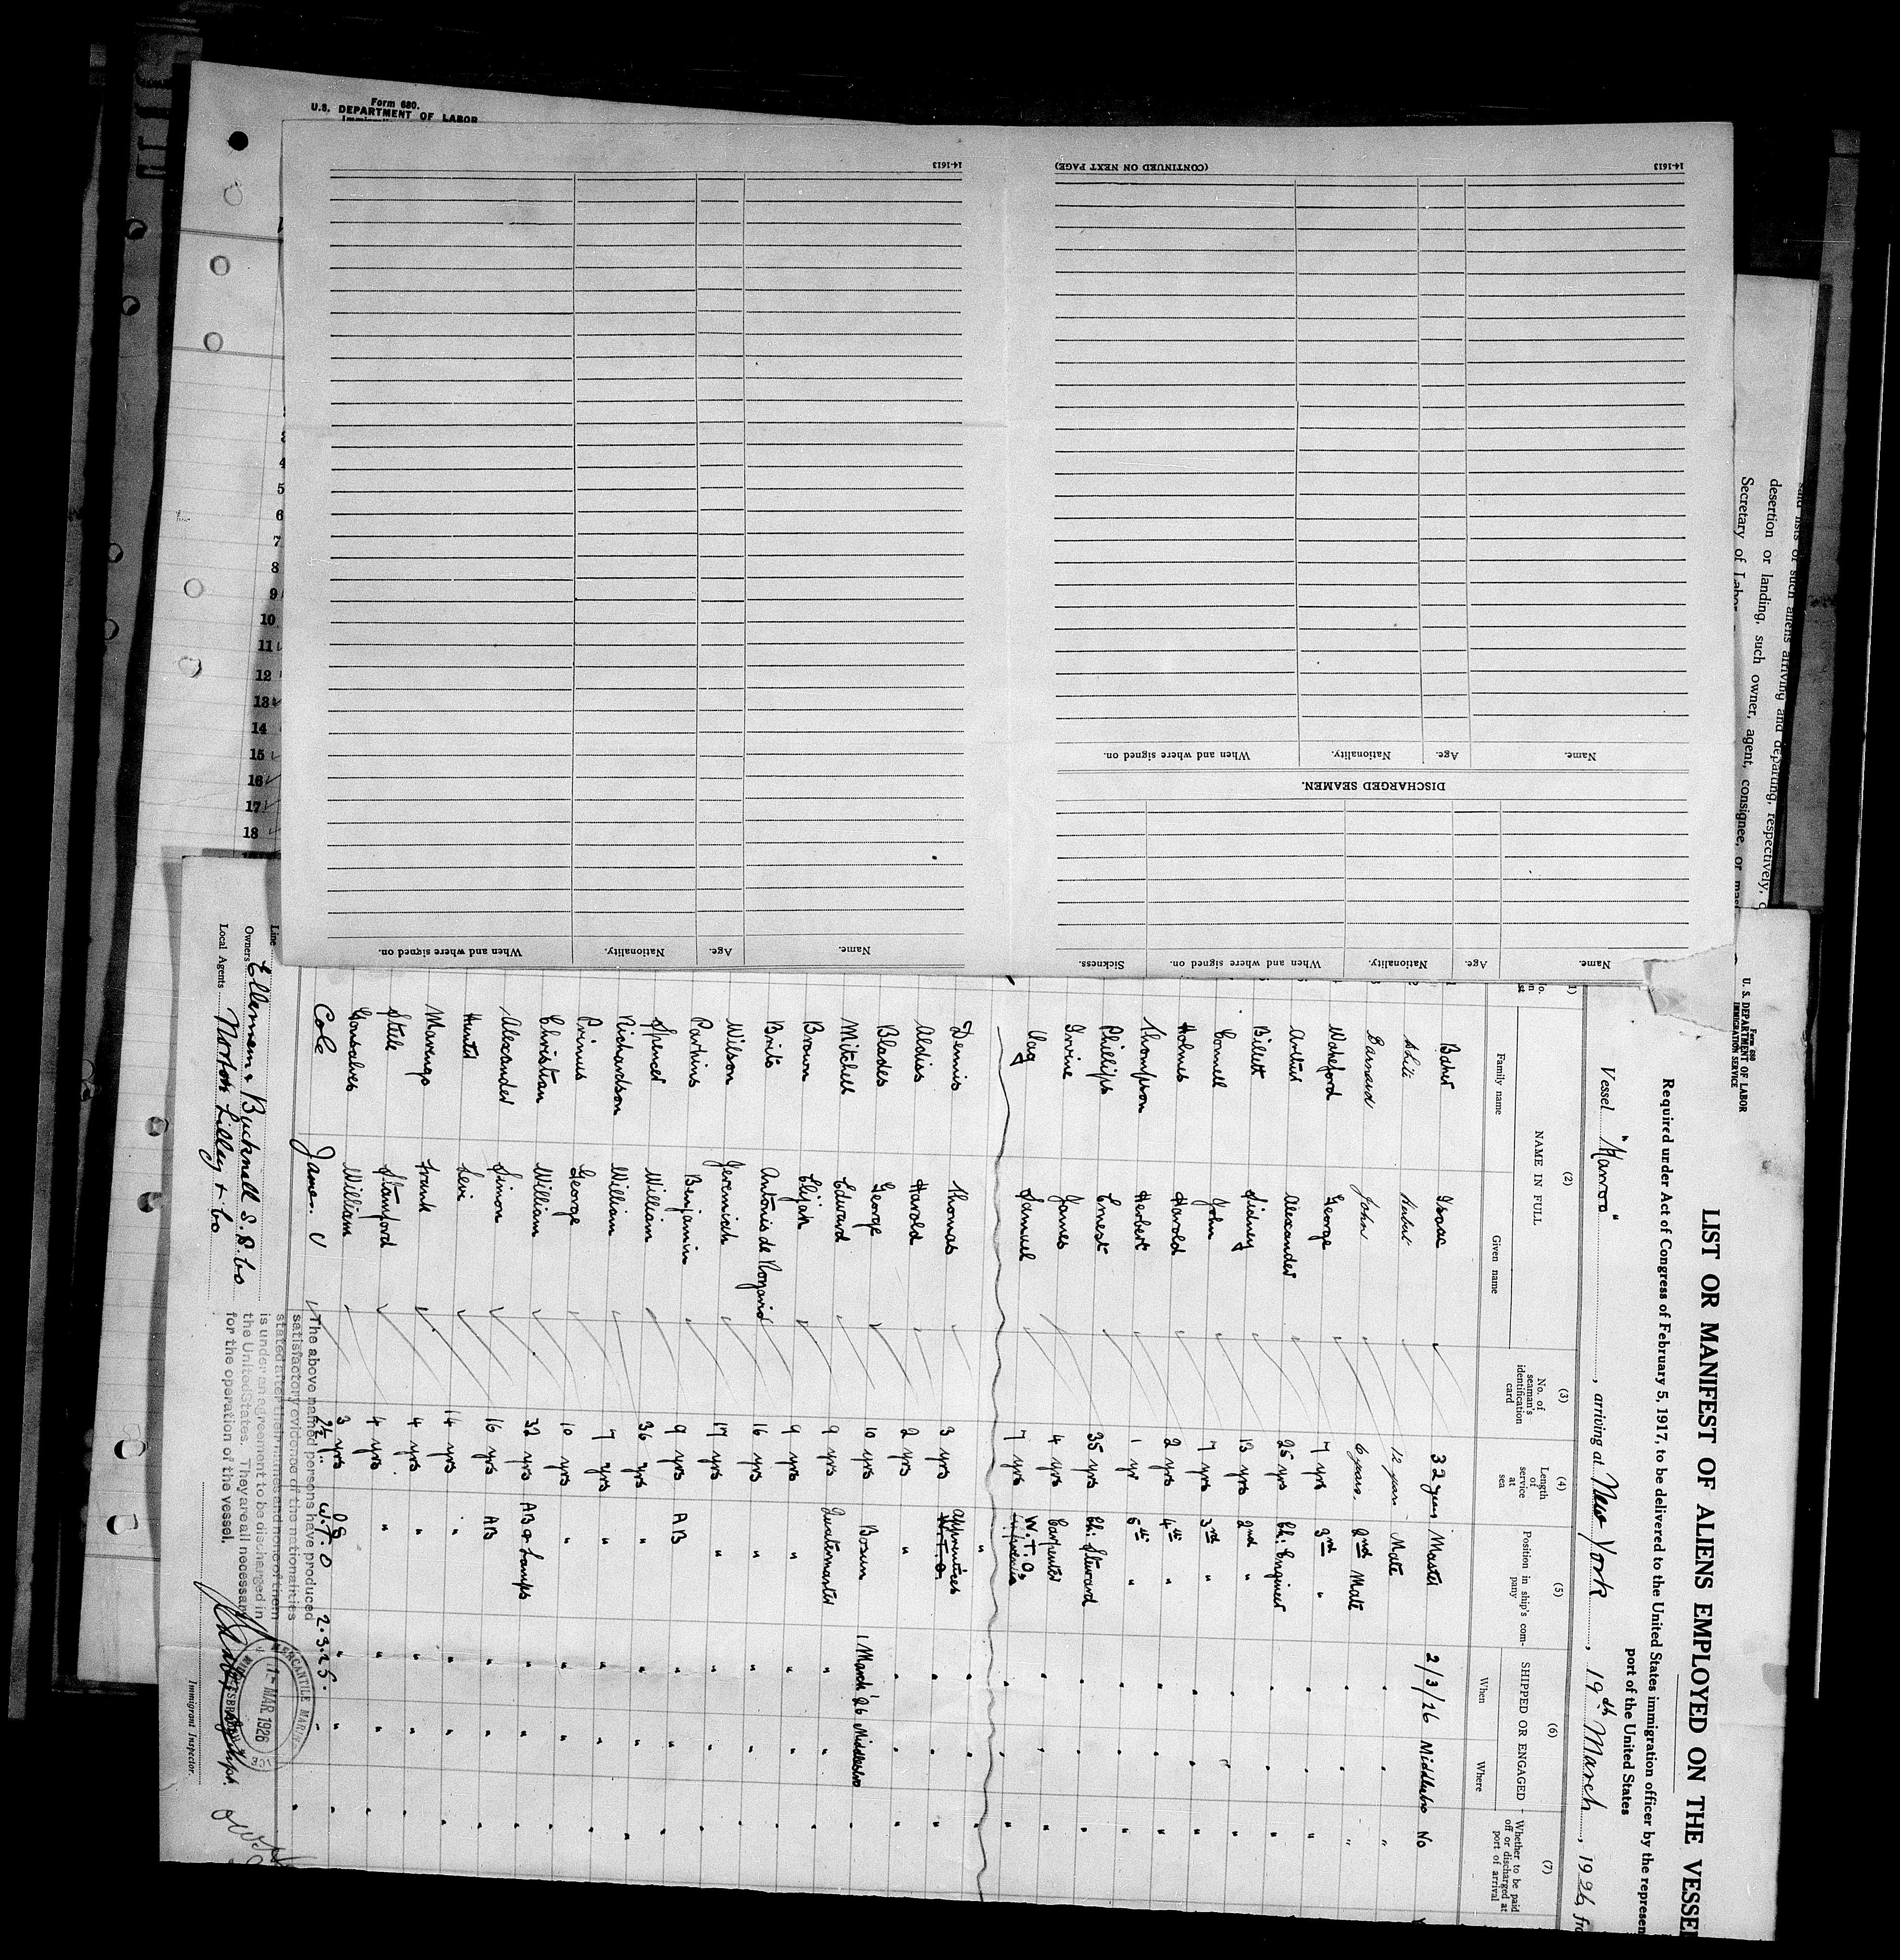 Form 680.
U.S. DEPARTMENT OF LABOR
14-1613
(CONTINUED ON NEXT PAGE)
14-1613
When and where signed on.
Nationality.
Age.
Name.
DISCHARGED SEAMEN.
Sickness.
When and where signed on.
Nationality.
Age.
Name.
When and where signed on.
Nationality.
Age.
Name.
3
4
5
6
7
8
9
10
11
12
13
14
15
16
17
18
desertion or landing, such owner, agent, consignee, or
Secretary of Labor
Form 680
U. S. DEPARTMENT OF LABOR
IMMIGRATION SERVICE
LIST OR MANIFEST OF ALIENS EMPLOYED ON THE VESSEL
Required under Act of Congress of February 5, 1917, to be delivered to the United States immigration officer by the represen
port of the United States
Vessel "Karroo", arriving at New York, 19th March, 1926, fro
(1) (2) (3) (4) (5) (6) (7)
NAME IN FULL
Family name Given name
No. of seaman's identification card
Length of service at sea
Position in ship's company
SHIPPED OR ENGAGED
When Where
Whether to be paid off or discharged at port of arrival
Baker Isaac 32 years Master 2/3/26 Middlesbro No
12 years Mate " " "
Barnard John 6 years. 2nd Mate " " "
Wakeford George 7 yrs 3rd " " " "
Arthur Alexander 25 yrs Ch: Engineer " " "
Billett Sidney 13 yrs 2nd " " " "
Connell John 7 yrs 3rd " " " "
Holmes Harold 2 yrs 4th " " " "
Thompson Herbert 1 yr 5th " " " "
Phillips Ernest 35 yrs Ch: Steward " " "
Irvine James 4 yrs Carpenter " " "
Samuel 7 yrs W.T.O. " " "
Dennis Thomas 3 yrs apprentices " " "
Aldiss Harold 2 yrs " " " "
Blades George 10 yrs Bosun 1 March '26 Middlesbro "
Mitchell Edward 9 yrs Quatermaster " " "
Brown Elijah 9 yrs " " "
Brito Antonio de 16 yrs " " " "
Wilson Jeremiah 17 yrs " " " "
Parkins Benjamin 9 yrs AB " " "
Spencer William 36 yrs " " " "
Richardson William 7 yrs " " " "
Primus George 10 yrs " " " "
Christian William 32 yrs AB & Lamps " " "
Alexander Simon 16 yrs AB " " "
Hunte Levi 14 yrs " " " "
Marengo Frank 4 yrs " " " "
Steele Stamford 4 yrs " " " "
Gonsalves William 3 yrs OS " " "
Cole James. V 2½ " W.T.O 2.3.25. " "
Line
Owners Ellerman & Bucknall S.S. Co
Local Agents Norton Lilley & Co
The above named persons have produced
satisfactory evidence of the nationalities
stated after their names and none of them
is under an agreement to be discharged in
the United States. They are all necessary
for the operation of the vessel.
MERCANTILE MARINE
1 - MAR 1926
Immigrant Inspector.